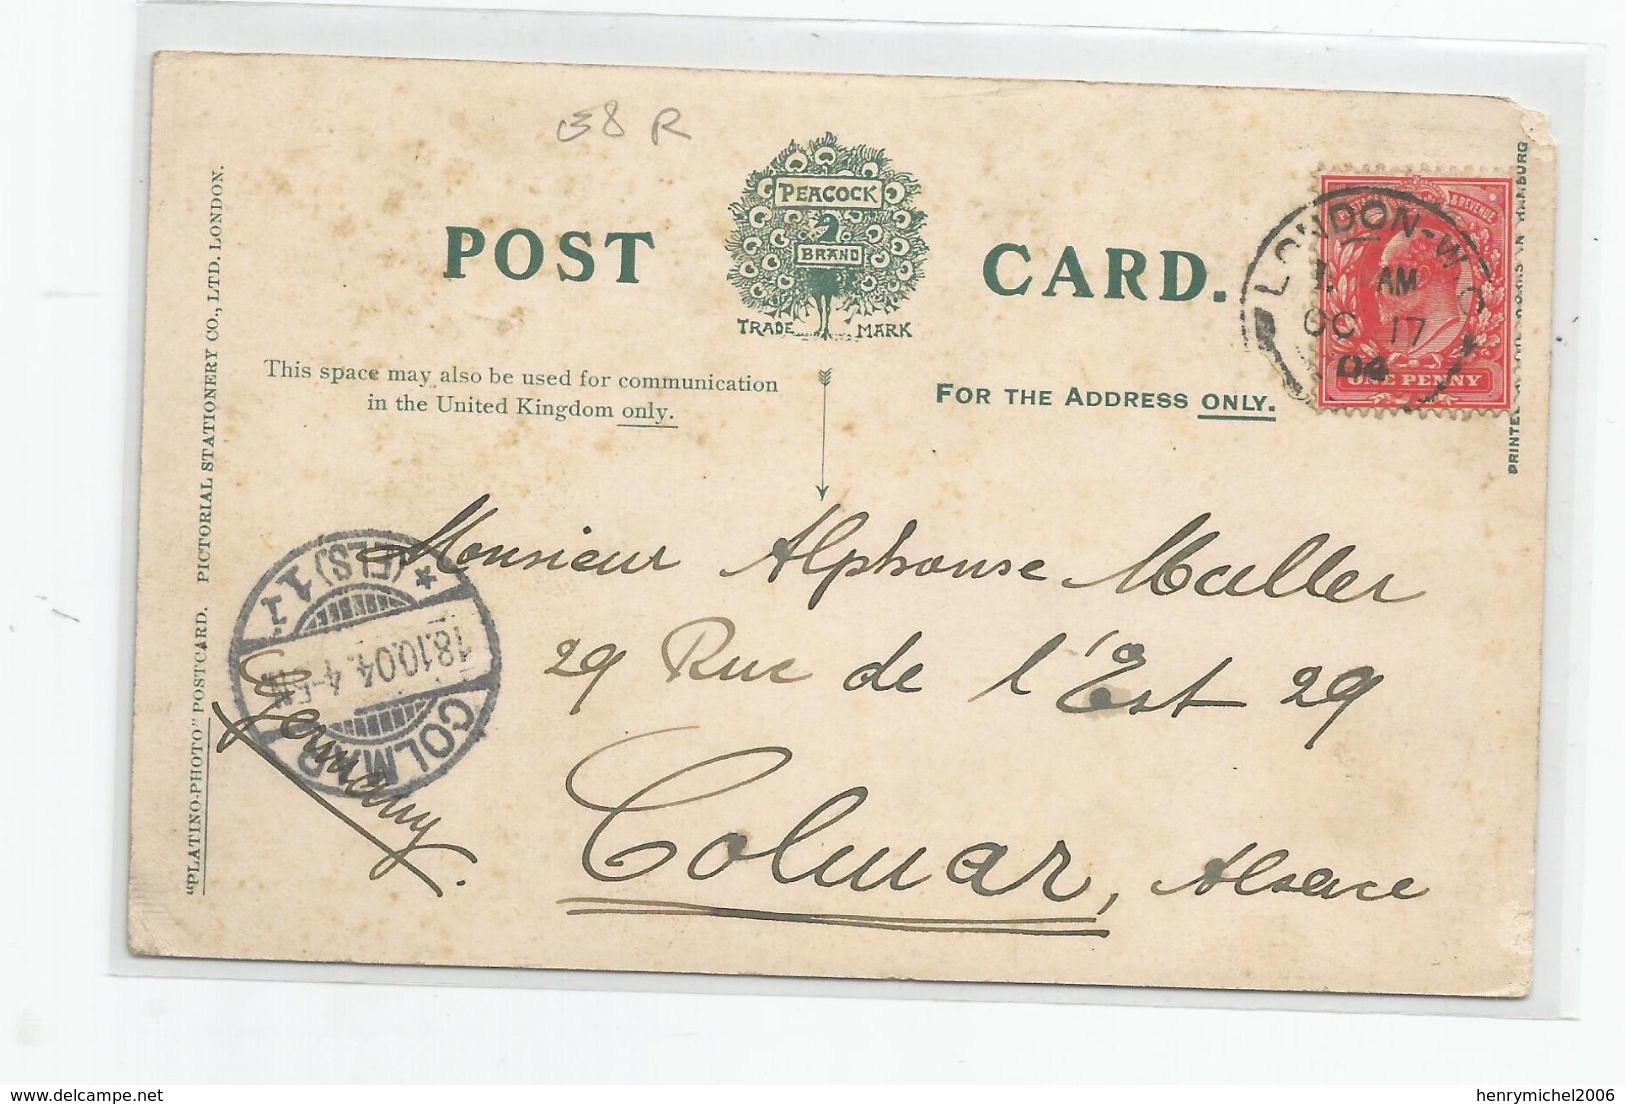 E8 R
POST CARD.
PEACOCK
BRAND
TRADE MARK
This space may also be used for communication
in the United Kingdom only.
FOR THE ADDRESS ONLY.
LONDON-W.C
AM
OC 17
04
& REVENUE
ONE PENNY
PRINTED
"PLATINO-PHOTO" POSTCARD. PICTORIAL STATIONERY CO., LTD. LONDON.
COLMAR
18.10.04.4-5N
(ELS) 11
Monsieur Alphonse Muller
29 Rue de l'Est 29
Colmar, Alsace
Germany.
henrymichel2006